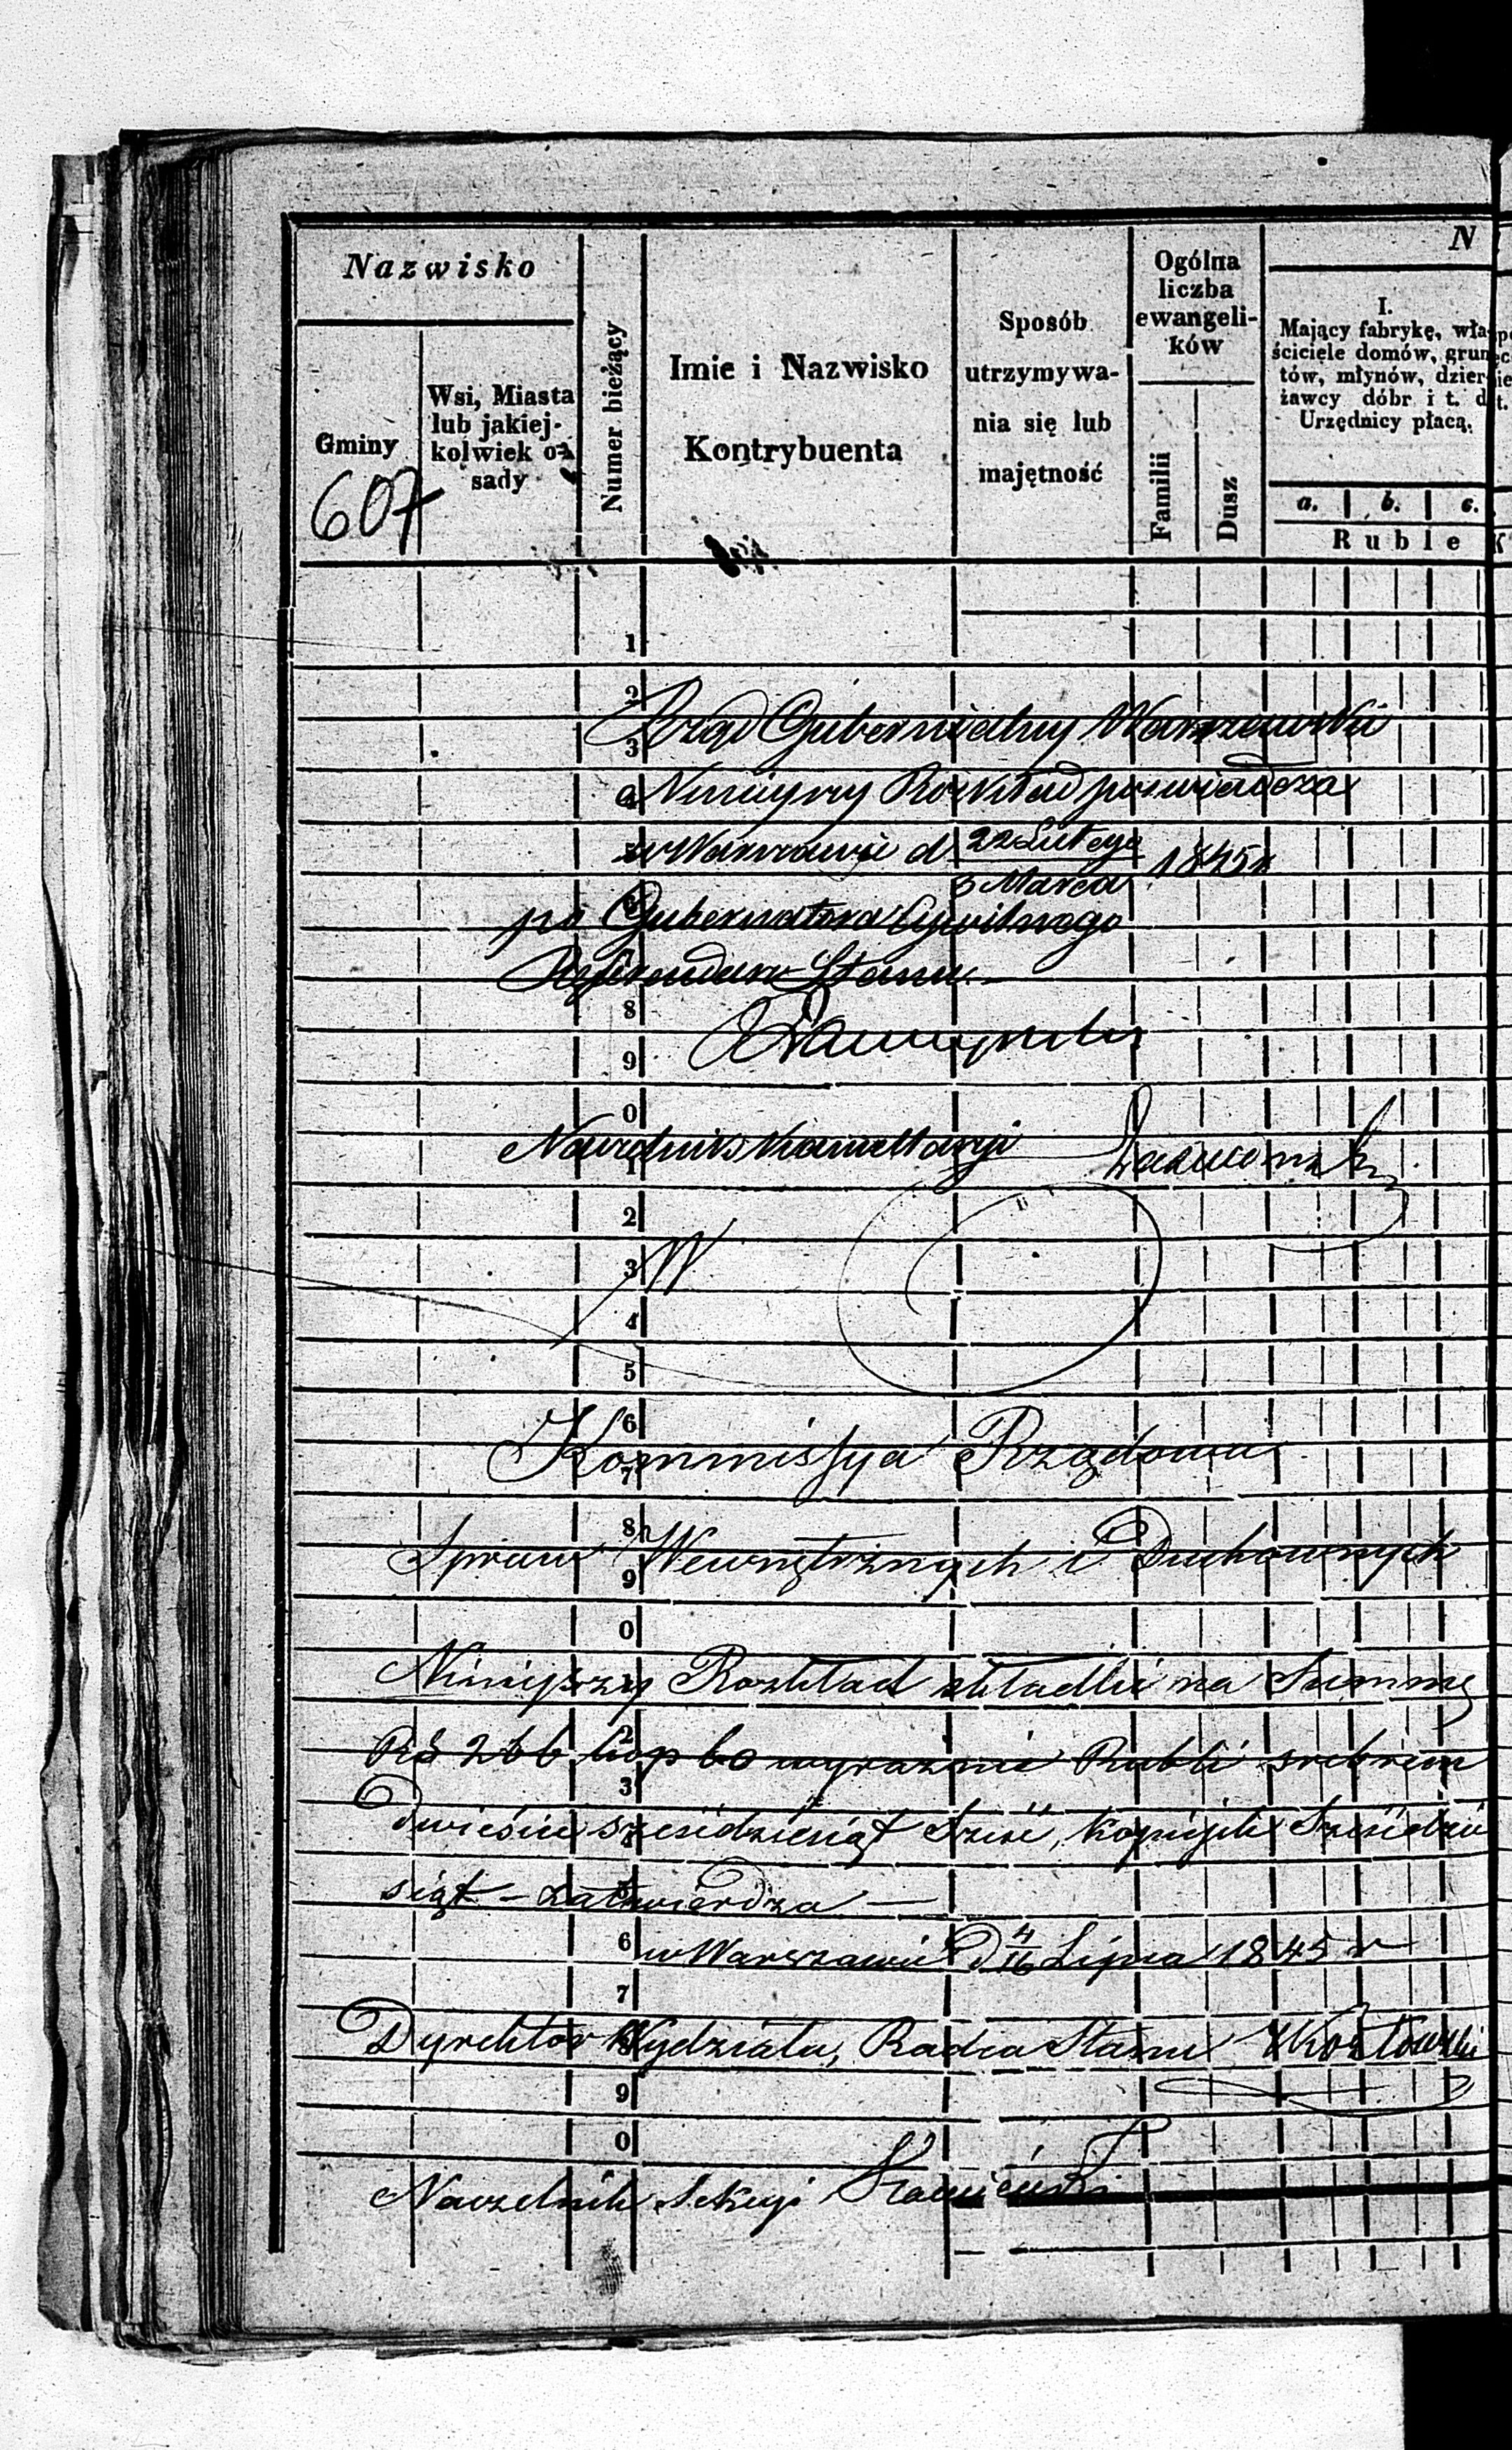 Nazwisko
Gminy
607
Wsi, Miasta
lub jakiej-
kolwiek o-
sady
Numer bieżący
Imie i Nazwisko
Kontrybuenta
Sposób
utrzymywa-
nia się lub
majętność
Ogólna
liczba
ewangeli-
ków
Familii
Dusz
N
I.
Mający fabrykę, wła-
ściciele domów, grun
tów, młynów, dzier
żawcy dóbr i t. d
Urzędnicy płacą.
a. b. c.
Ruble
1
2
Rząd Gubernialny Warszawski
3
Niniejszy Rozkład poswiadcza
w Warszawie d 22 Lutego 1845 r
3 Marca
po Gubernatora Cywilnego
Referendarz Stanu
8
9
0
Naczelnik Kancellaryi
1
2
3
W
4
5
6
Kommissya Rządowa
7
8
Spraw Wewnętrznych i Duchownych
9
0
Niniejszy Rozkład składki na Summę
2
Rs 266 kop 60 wyraźnie Rubli srebrem
3
dwieście sześćdziesiąt sześć, kopiejek sześćdzie
siąt – zatwierdza –
6
w Warszawie d 4/16 Lipca 1845 r
7
Dyrektor Wydziału, Radca Stanu Kozłowski
9
0
Naczelnik Sekcyi Kamieński